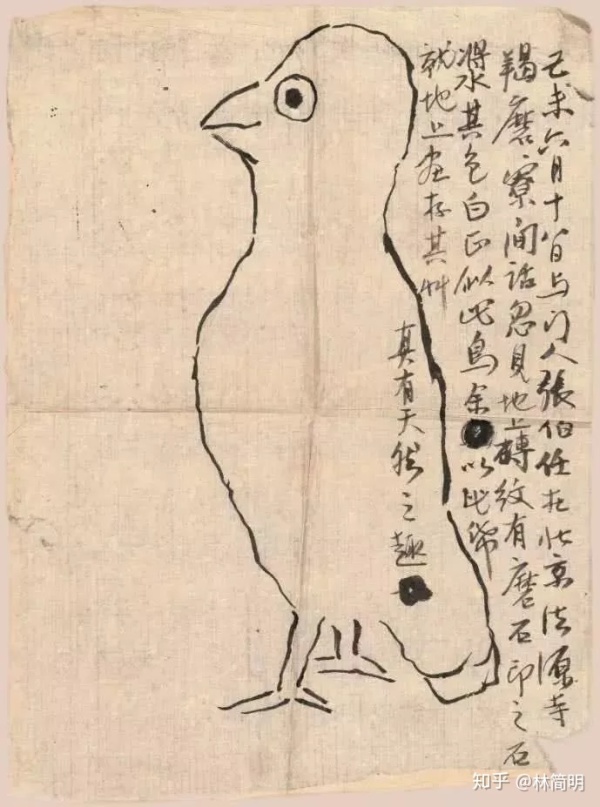 己未六月十八日与门人張伯任在北京法源寺
羯磨寮间話忽見地上磚紋有磨石印之石
漿其色白正似此鳥余以此帋
就地上画存其艸
真有天然之趣
知乎 @林简明